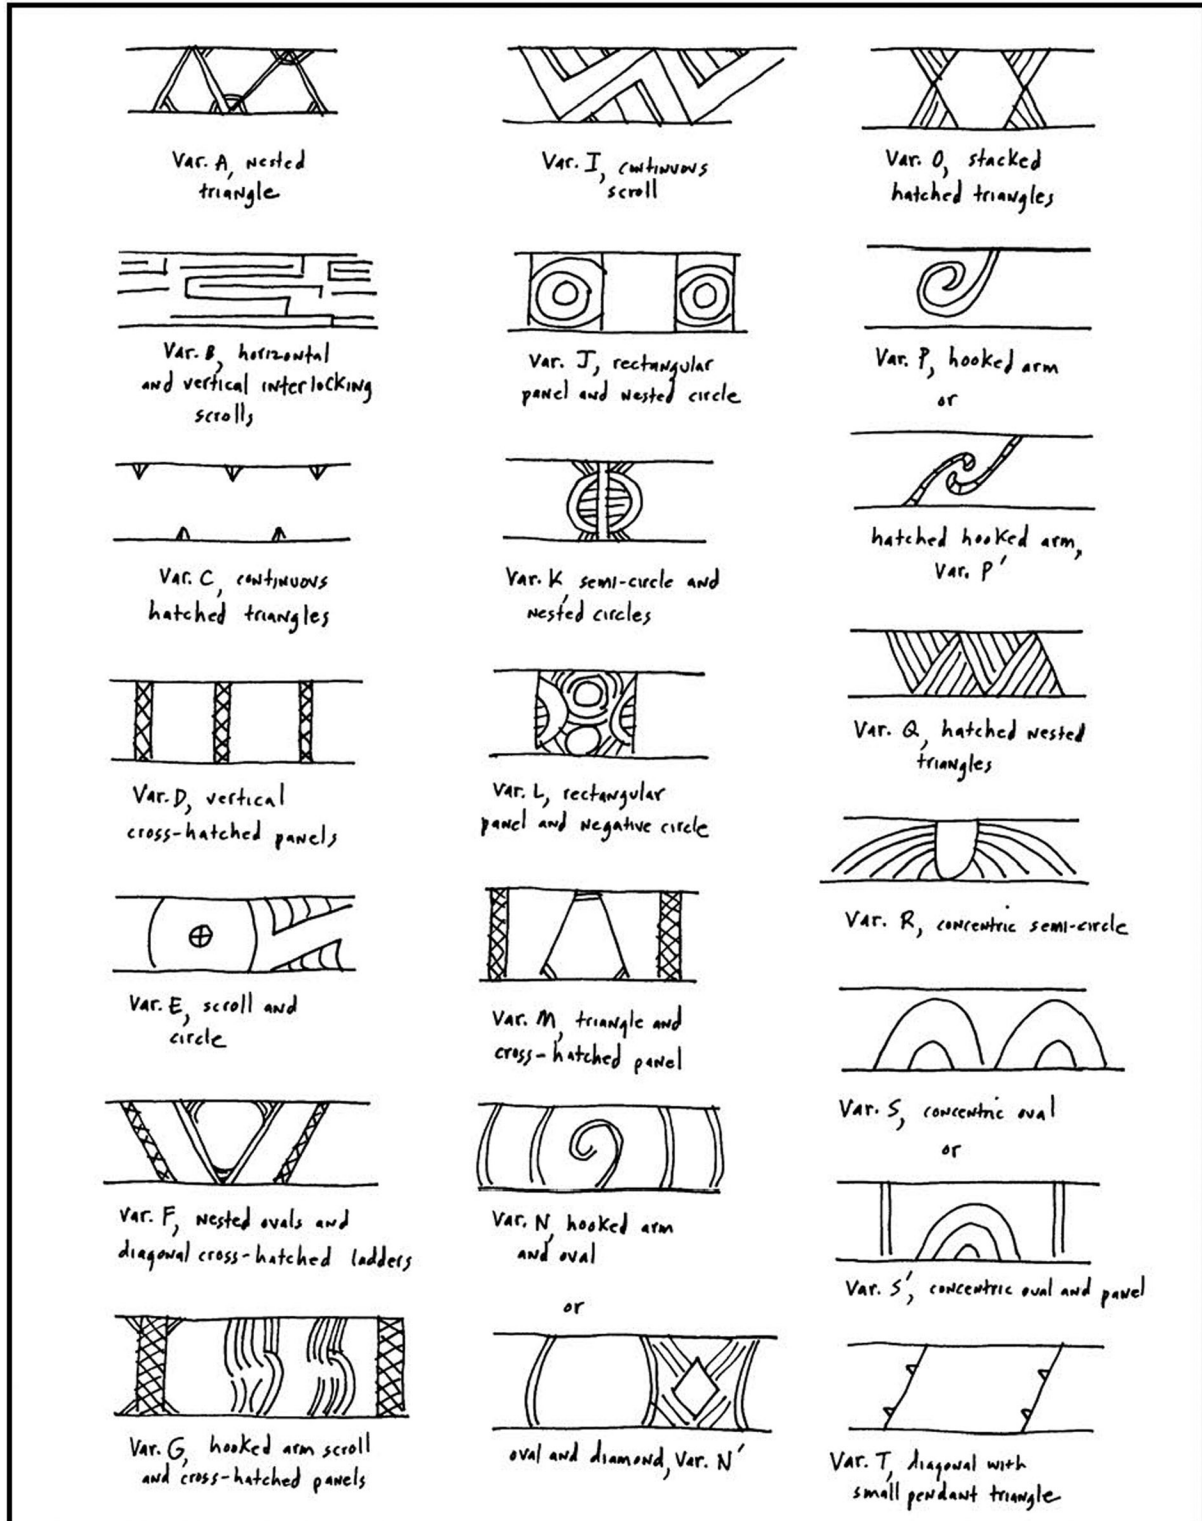 Var. A, nested
triangle
Var. B, horizontal
and vertical interlocking
scrolls
Var. C, continuous
hatched triangles
Var. D, vertical
cross-hatched panels
Var. E, scroll and
circle
Var. F, nested ovals and
diagonal cross-hatched ladders
Var. G, hooked arm scroll
and cross-hatched panels
Var. I, continuous
scroll
Var. J, rectangular
panel and nested circle
Var. K, semi-circle and
nested circles
Var. L, rectangular
panel and negative circle
Var. M, triangle and
cross-hatched panel
Var. N, hooked arm
and oval
or
oval and diamond, Var. N'
Var. O, stacked
hatched triangles
Var. P, hooked arm
or
hatched hooked arm,
Var. P'
Var. Q, hatched nested
triangles
Var. R, concentric semi-circle
Var. S, concentric oval
or
Var. S', concentric oval and panel
Var. T, diagonal with
small pendant triangle